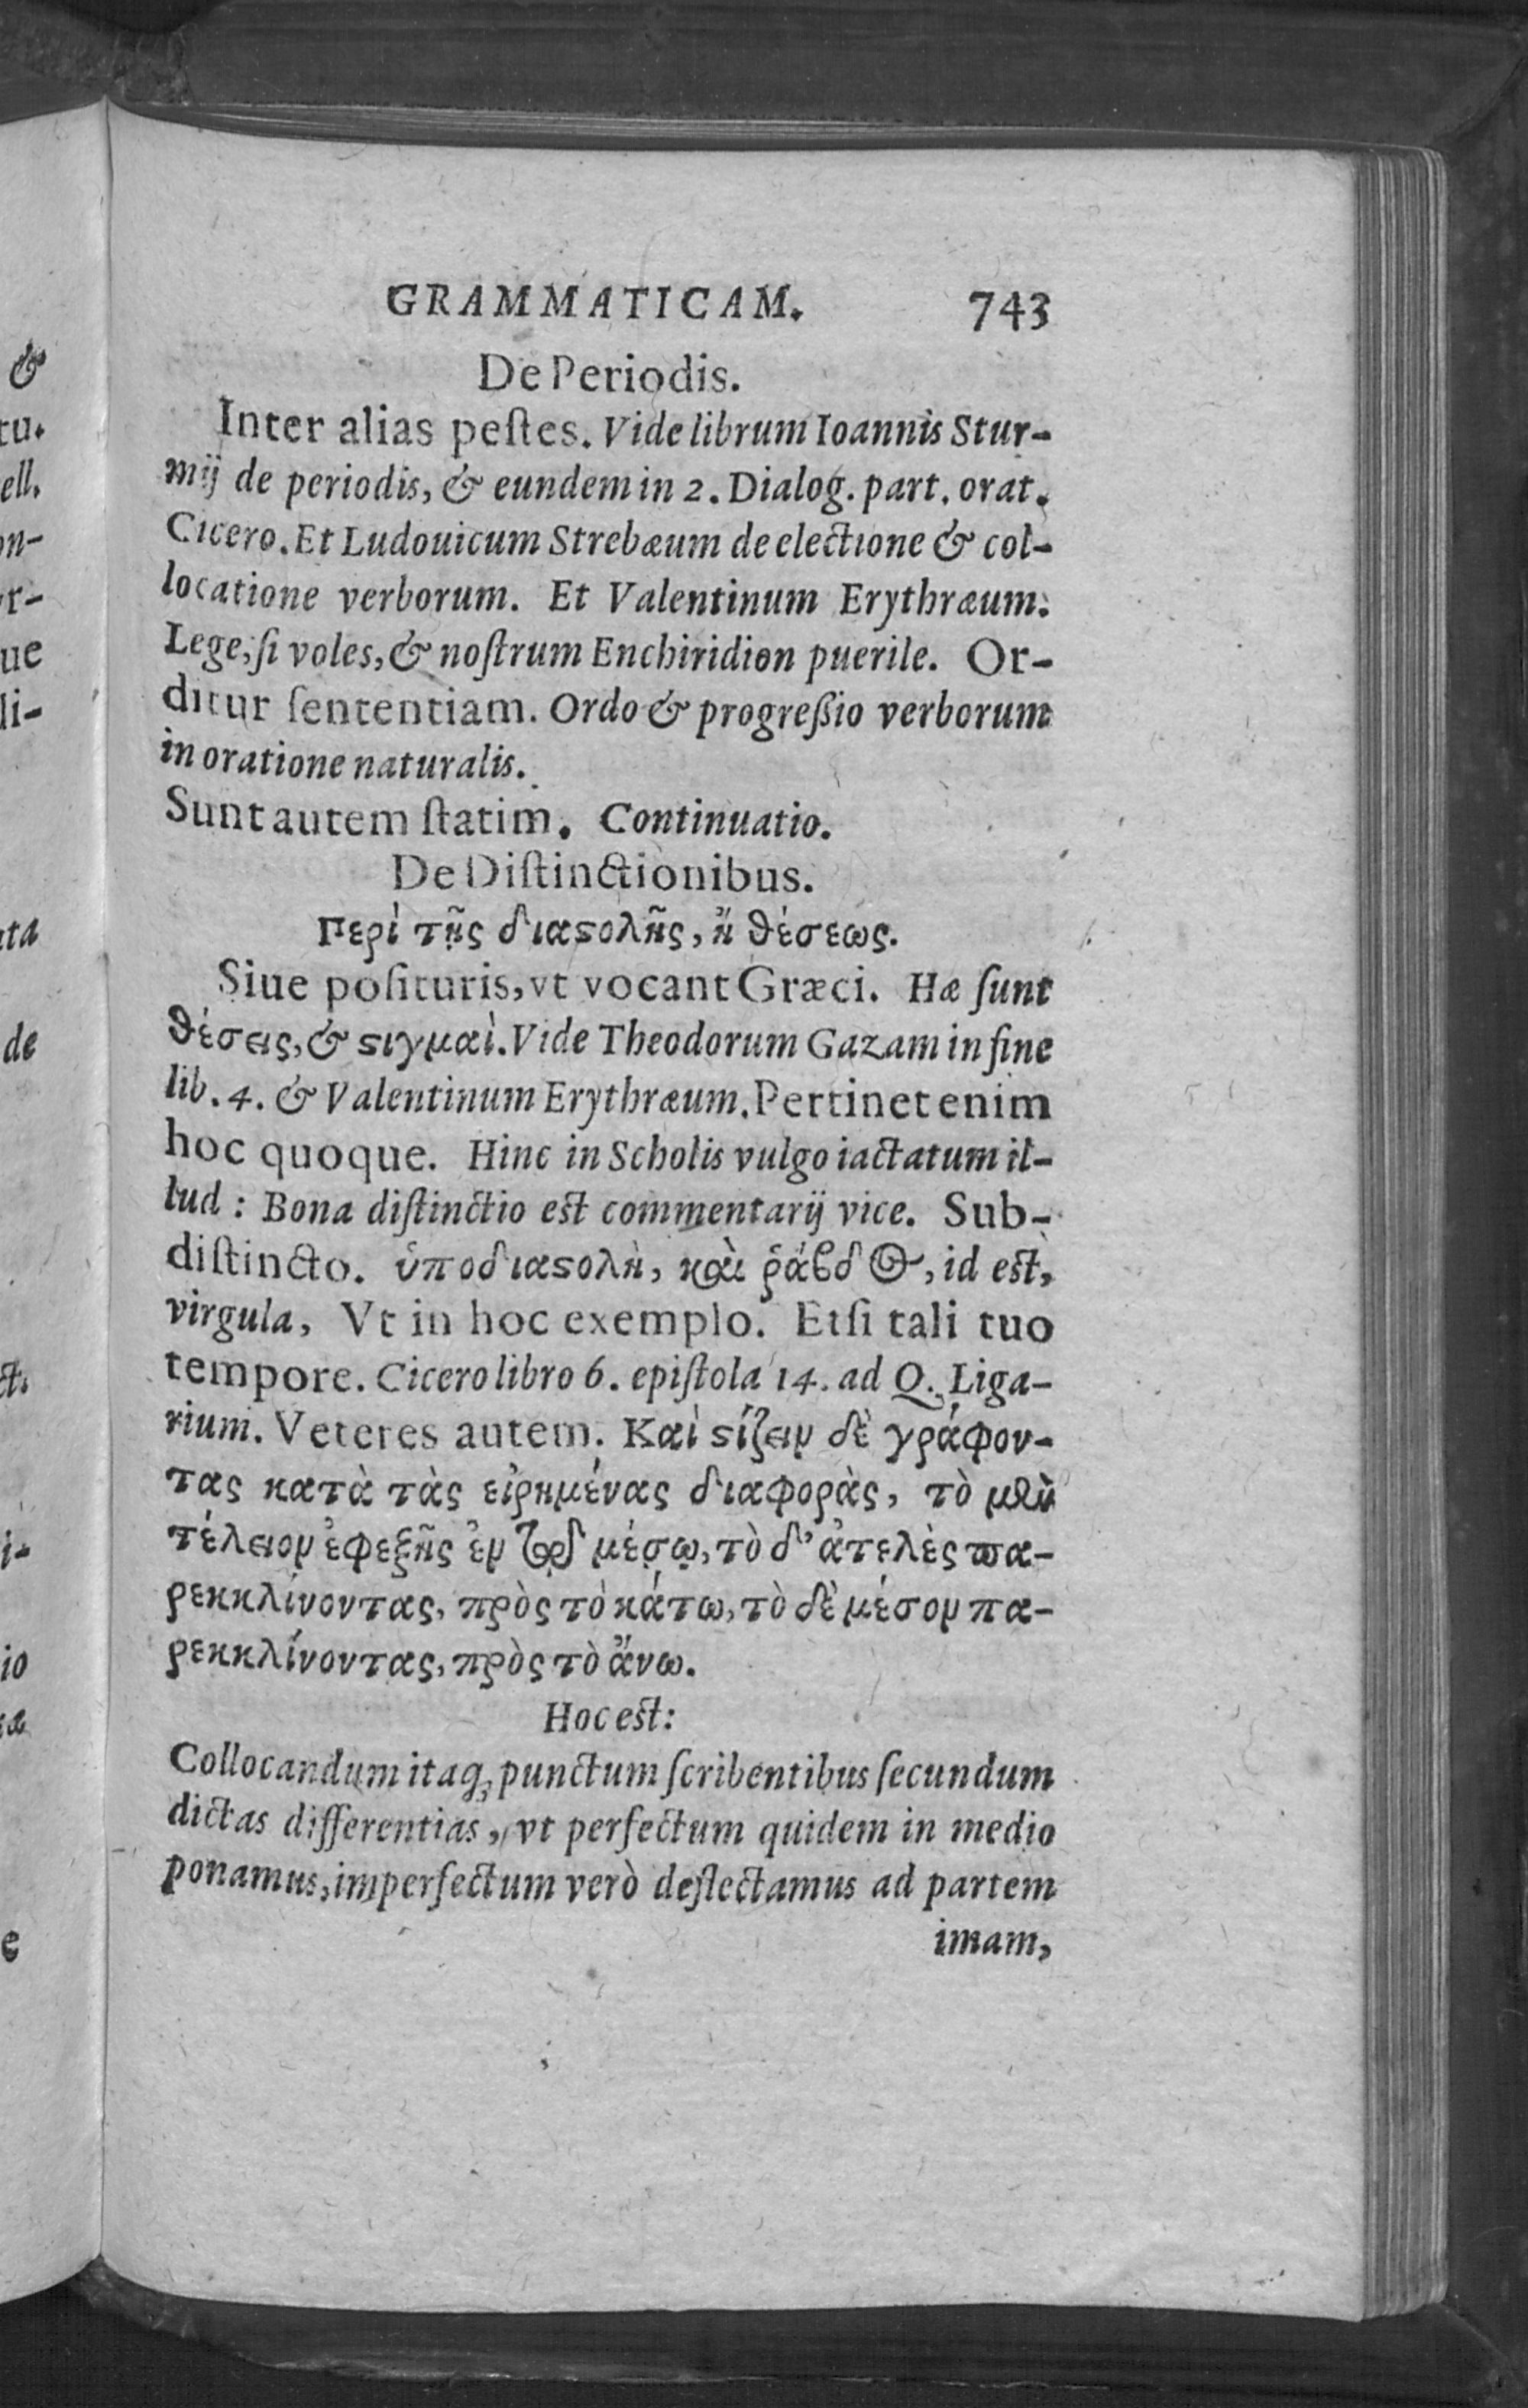 GRAMMATICAM. 743
De Periodis.
Inter alias peſtes. Vide librum Ioannis Stur-
mij de periodis, & eundem in 2. Dialog. part. orat.
Cicero. Et Ludouicum Strebæum de electione & col-
locatione verborum. Et Valentinum Erythræum.
Lege, ſi voles, & noſtrum Enchiridion puerile. Or-
ditur ſententiam. Ordo & progreßio verborum
in oratione naturalis.
Sunt autem ſtatim. Continuatio.
De Diſtinctionibus.
Περὶ τῆς διαϛολῆς, ἢ θέσεως.
Siue poſituris, vt vocant Græci. Hæ ſunt
θέσεις, & ϛιγμαὶ. Vide Theodorum Gazam in fine
lib. 4. & Valentinum Erythræum. Pertinet enim
hoc quoque. Hinc in Scholis vulgo iactatum il-
lud : Bona diſtinctio est commentarij vice. Sub-
diſtincto. ὑποδιαϛολὴ, καὶ ῥάβδος, id est,
virgula, Vt in hoc exemplo. Etſi tali tuo
tempore. Cicero libro 6. epiſtola 14. ad Q. Liga-
rium. Veteres autem. Καὶ ϛίζειν δὲ γράφον-
τας κατὰ τὰς εἰρημένας διαφορὰς, τὸ μὲν
τέλειον ἐφεξῆς ἐν τῷ μέσῳ, τὸ δ’ ἀτελὲς πα-
ρεκκλίνοντας, πρὸς τὸ κάτω, τὸ δὲ μέσον πα-
ρεκκλίνοντας, πρὸς τὸ ἄνω.
Hoc est:
Collocandum itaq; punctum ſcribentibus ſecundum
dictas differentias, vt perfectum quidem in medio
ponamus, imperfectum verò deflectamus ad partem
imam,